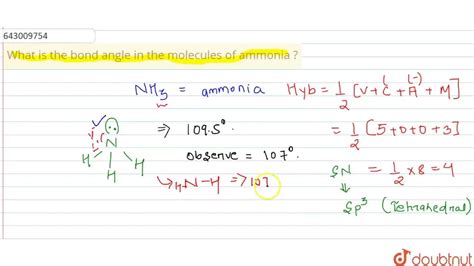 643009754
What is the bond angle in the molecules of ammonia ?
NH3 = ammonia
Hyb = 1/2 [V + C(+) + A(-) + M]
⇒ 109.5°
= 1/2 [5+0+0+3]
observe = 107°
N
H H H
N-H ⇒ 107
SN = 1/2 × 8 = 4
Sp3 (Tetrahedral)
doubtnut